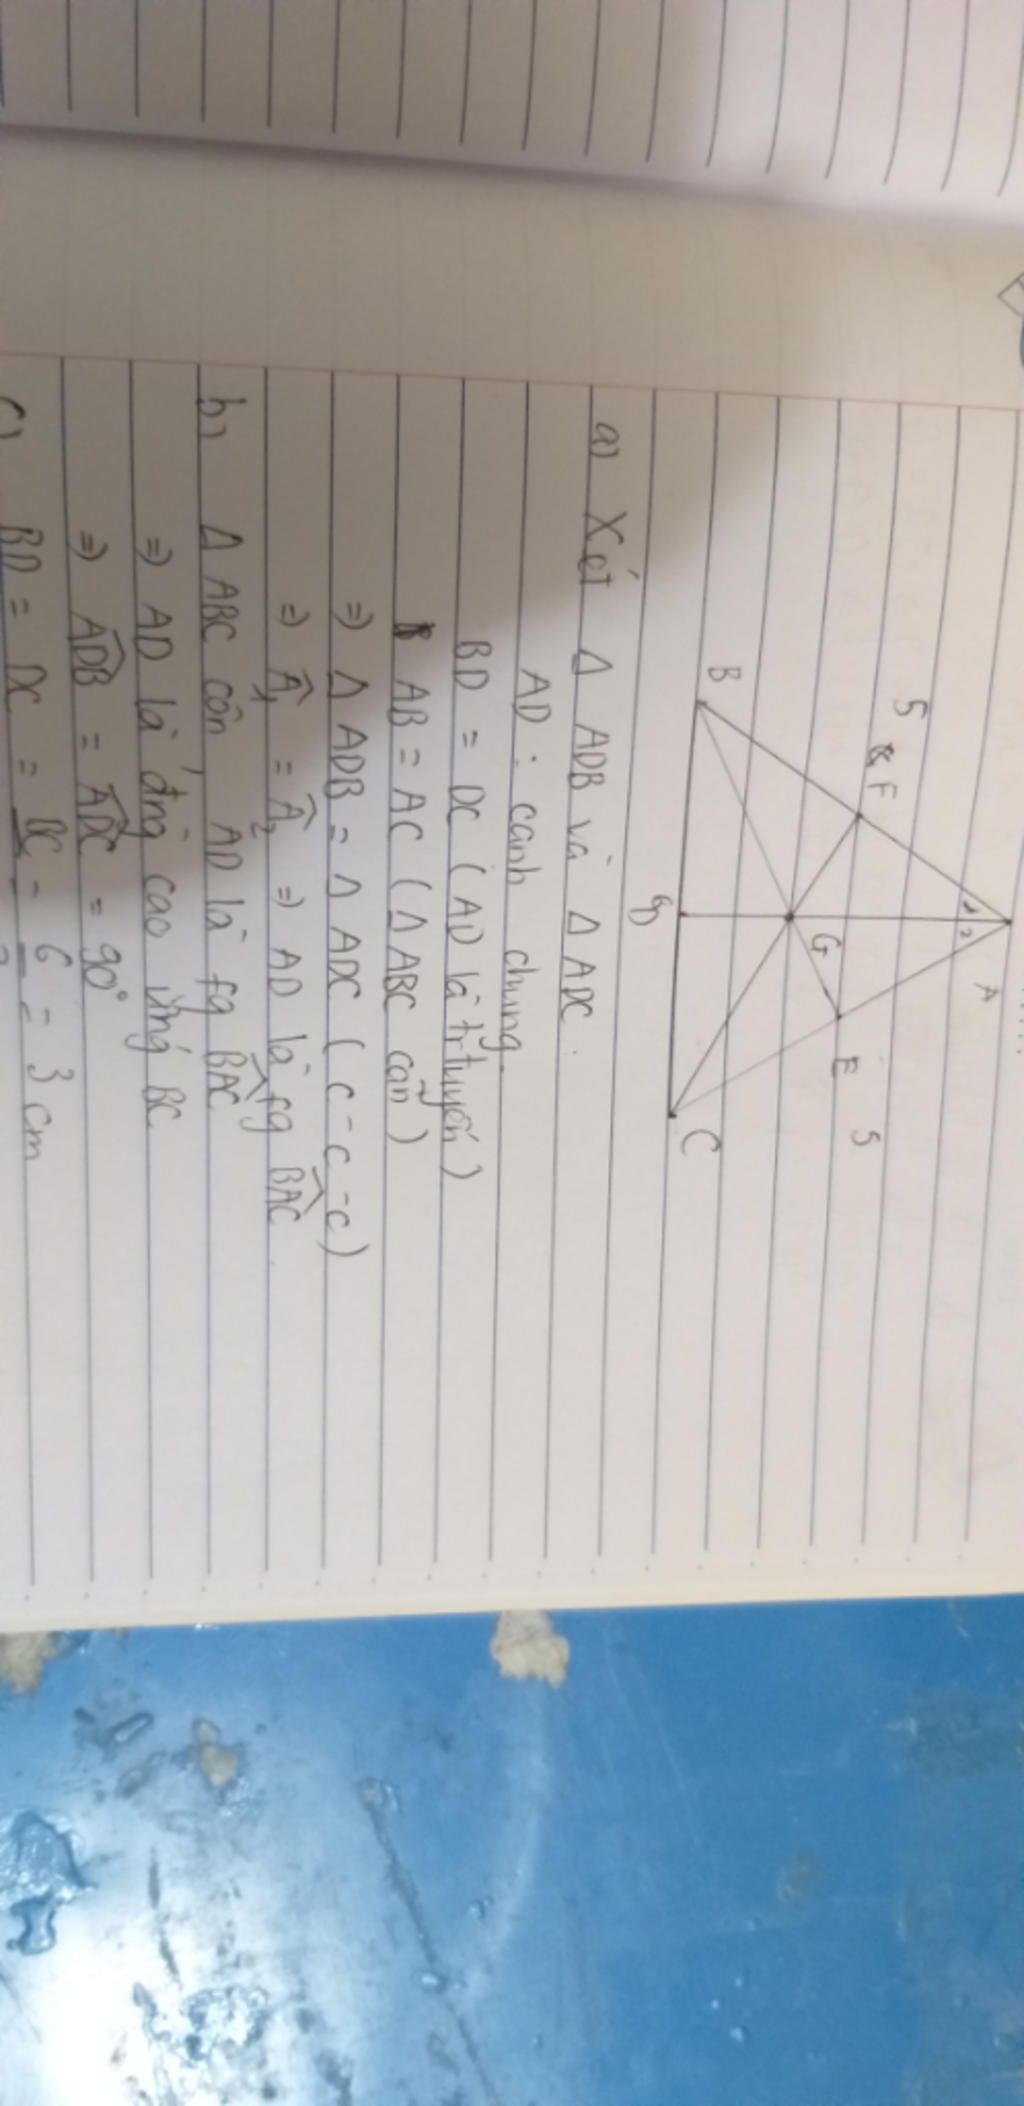 A
1 2
5
F
E
5
G
B
D
C
a) Xét Δ ADB và Δ ADC:
AD: cạnh chung.
BD = DC (AD là tr tuyến)
AB = AC (Δ ABC cân)
=> Δ ADB = Δ ADC (c-c-c)
=> Â1 = Â2 => AD là fg BAC
b) Δ ABC cân, AD là fg BAC
=> AD là đng cao ứng BC
=> ADB = ADC = 90°
c) BD = DC = BC = 6 = 3 cm